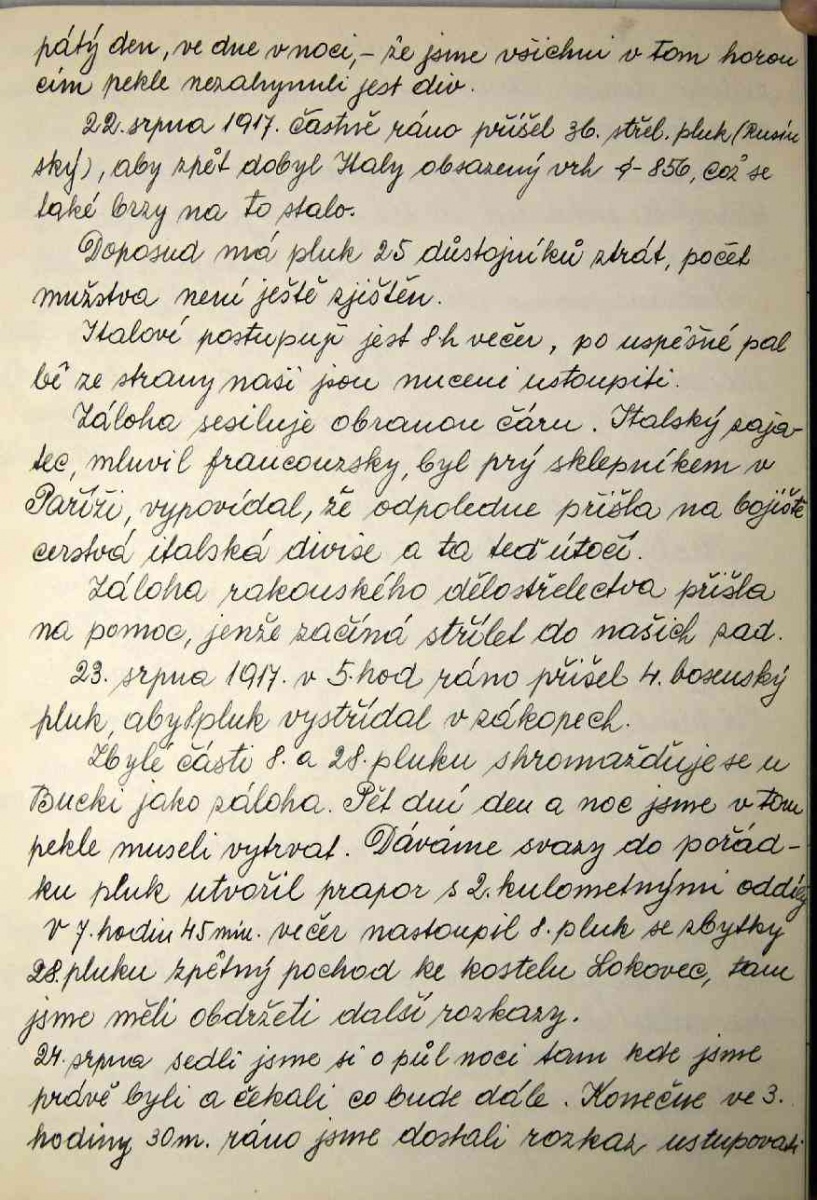 pátý den, ve dne v noci, – že jsme všichni v tom horou
cím pekle nezahynuli jest div.
22. srpna 1917. častně ráno přišel 36. střel. pluk (Rusín
ský), aby zpět dobyl Italy obsazený vrh 856, což se
také brzy na to stalo.
Doposud má pluk 25 důstojníků ztrát, počet
mužstva není ještě zjištěn.
Italové postupují jest 8 h večer, po uspěšné pal
bě ze strany naší jsou nuceni ustoupiti.
Záloha sesiluje obranou čáru. Italský zaja-
tec, mluvil francouzsky, byl prý sklepníkem v
Paříži, vypovídal, že odpoledne přišla na bojiště
čerstvá italská divise a ta teď útočí.
Záloha rakouského dělostřelectva přišla
na pomoc, jenže začíná střílet do našich zad.
23. srpna 1917. v 5. hod ráno přišel 4. bosenský
pluk, aby 8. pluk vystřídal v zákopech.
Zbylé části 8. a 28. pluku shromažďuje se u
Bucki jako záloha. Pět dní den a noc jsme v tom
pekle museli vytrvat. Dáváme svazy do pořád-
ku pluk utvořil prapor s 2. kulometnými oddíly
V 7. hodin 45 min. večer nastoupil 8. pluk se zbytky
28. pluku zpětný pochod ke kostelu Lokovec, tam
jsme měli obdržeti další rozkazy.
24. srpna sedli jsme si o půl noci tam kde jsme
právě byli a čekali co bude dále. Konečne ve 3.
hodiny 30 m. ráno jsme dostali rozkaz ustupovati